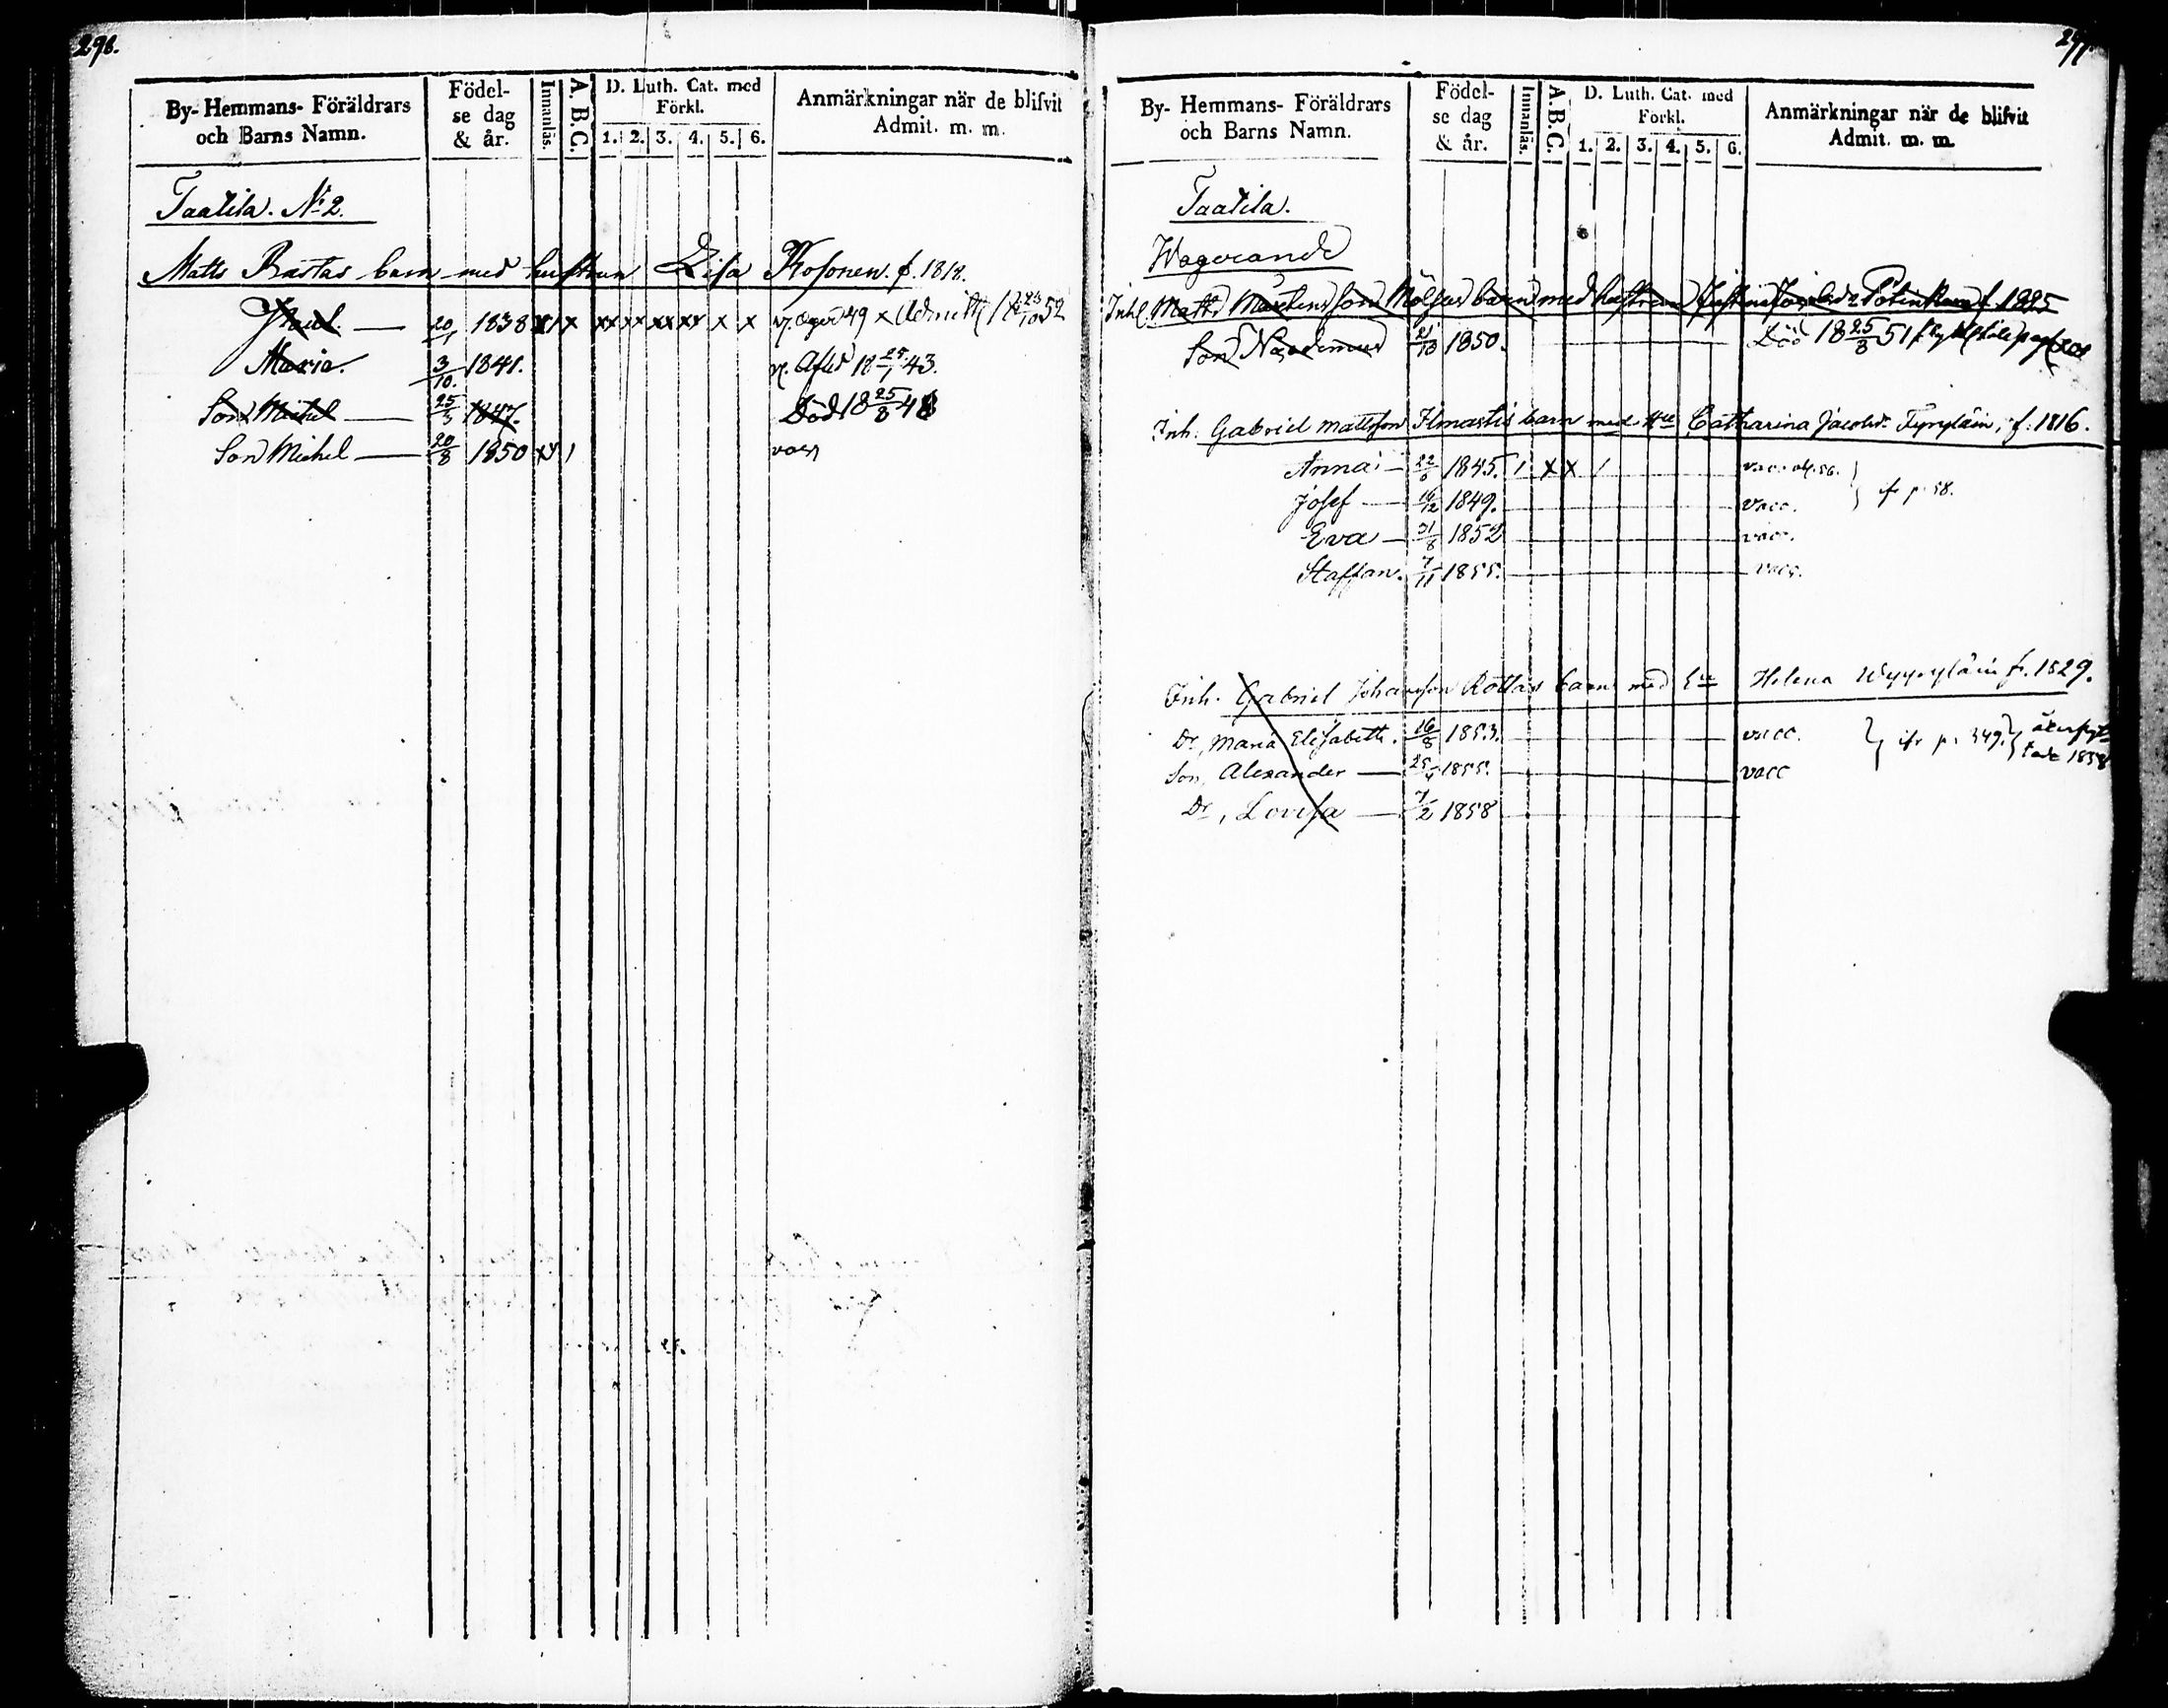 296.
By- Hemmans- Föräldrars
och Barns Namn.
Födel-
se dag
& år.
Innanläs.
A. B. C.
D. Luth. Cat. med
Förkl.
1. 2. 3. 4. 5. 6.
Anmärkningar när de blifvit
Admit. m. m.
Taatila. No 2.
Matts Rastas barn med hustrun Lisa Kosonen. f. 1818.
20/1 1838 x x xx xx xx xx x x 49 x Admitt 18 23/10 52
Maria. 3/10. 1841. Afled 18 25/1 43.
Son Michel 25/3 1847. Död 18 25/8 48
Son Michel 20/8 1850 vacc
297
By- Hemmans- Föräldrars
och Barns Namn.
Födel-
se dag
& år.
Innanläs.
A. B. C.
D. Luth. Cat. med
Förkl.
1. 2. 3. 4. 5. 6.
Anmärkningar när de blifvit
Admit. m. m.
Taatila.
Inh. Matts barn med hustrun
Son 1850. Död 18 25/8 51
Inh. Gabriel Mattsson Ilmastis barn med Hu Catharina Jacobsdr. f. 1816.
Anna 22/ 1845. / x x / vacc.
Josef 1849. vacc. p. 58.
Eva 31/8 1852 vacc.
Staffan. 7/11 1855. vacc.
Inh. Gabriel Johansson barn med Helena f. 1829.
Dr, Maria Elisabeth. 16/8 1853. vacc. p. 349.
Son, Alexander 1855. vacc 1858
Dr, Lovisa 7/2 1858